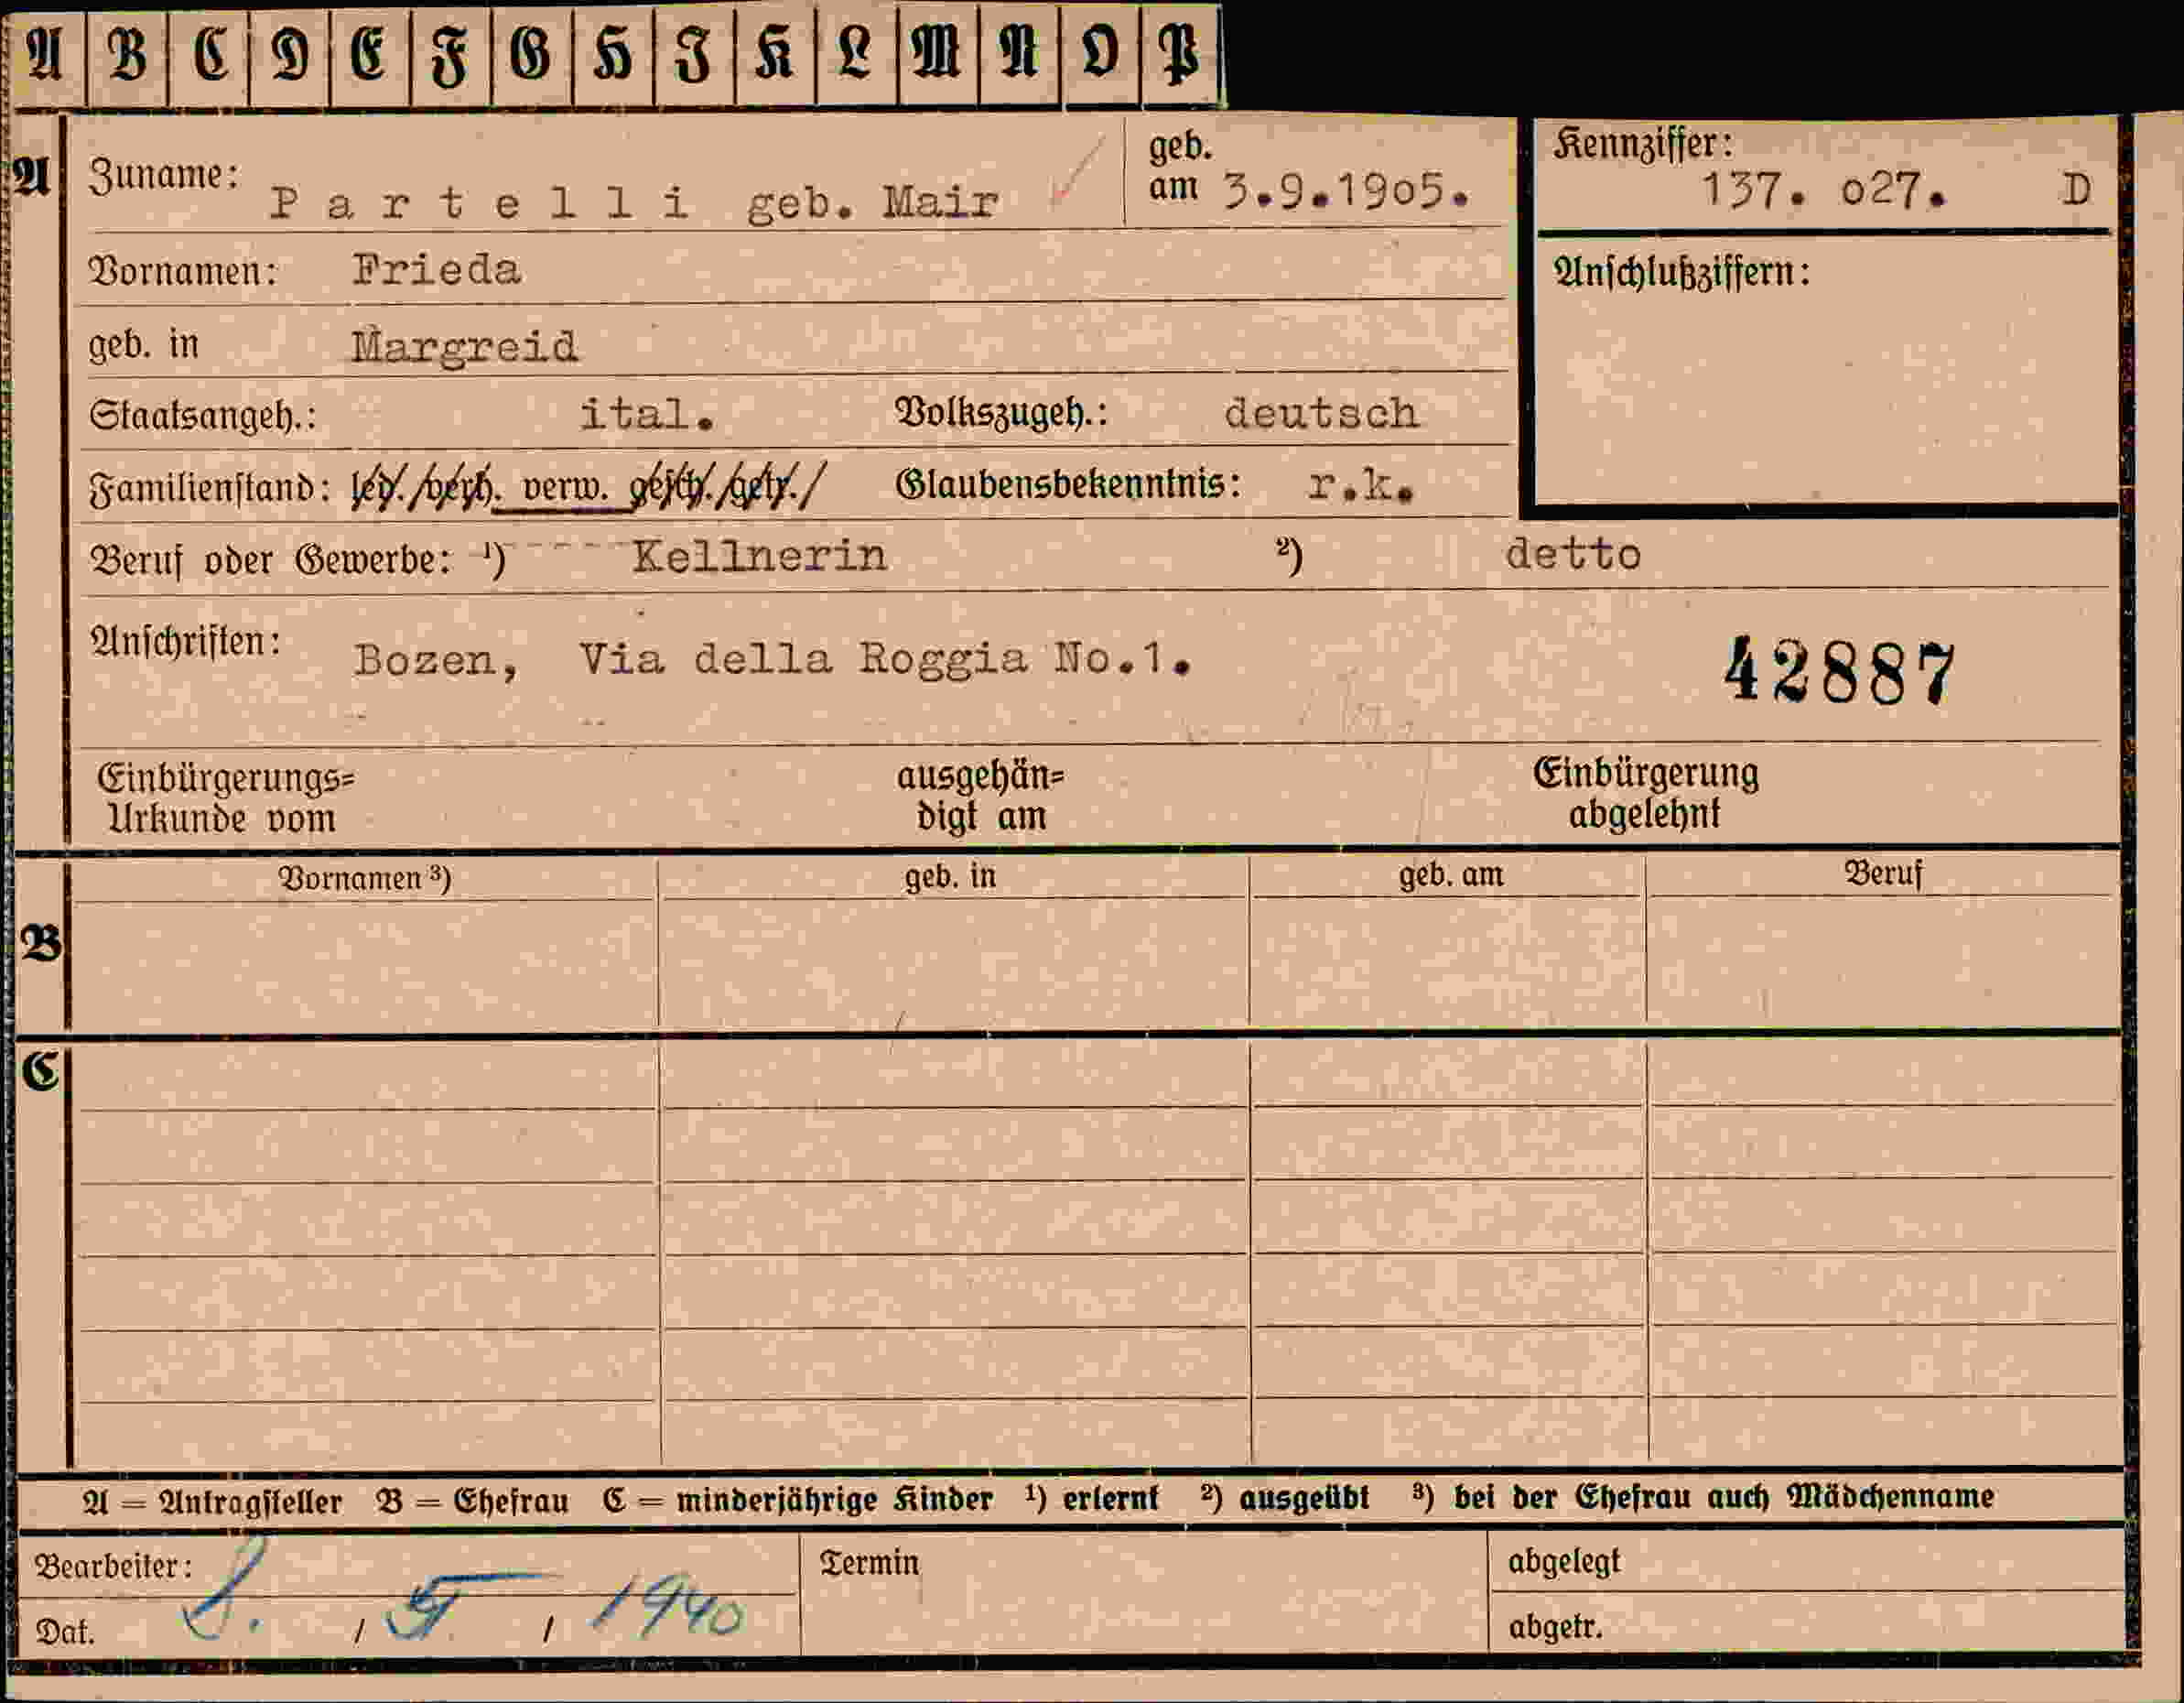 A B C D E F G H I K L M N O P
A Zuname: Partelli geb. Mair geb. am 3.9.19o5. Kennziffer: 137. o27. D
Vornamen: Frieda Anschlußziffern:
geb. in Margreid
Staatsangeh.: ital. Volkszugeh.: deutsch
Familienstand: led. verh. verw. gesch. getr. Glaubensbekenntnis: r.k.
Beruf oder Gewerbe: ¹) Kellnerin ²) detto
Anschriften: Bozen, Via della Roggia No.1. 42887
Einbürgerungs= ausgehän= Einbürgerung
Urkunde vom digt am abgelehnt
Vornamen ³) geb. in geb. am Beruf
B
C
A = Antragsteller B = Ehefrau C = minderjährige Kinder ¹) erlernt ²) ausgeübt ³) bei der Ehefrau auch Mädchenname
Bearbeiter: Termin abgelegt
Dat. / / 1940 abgetr.